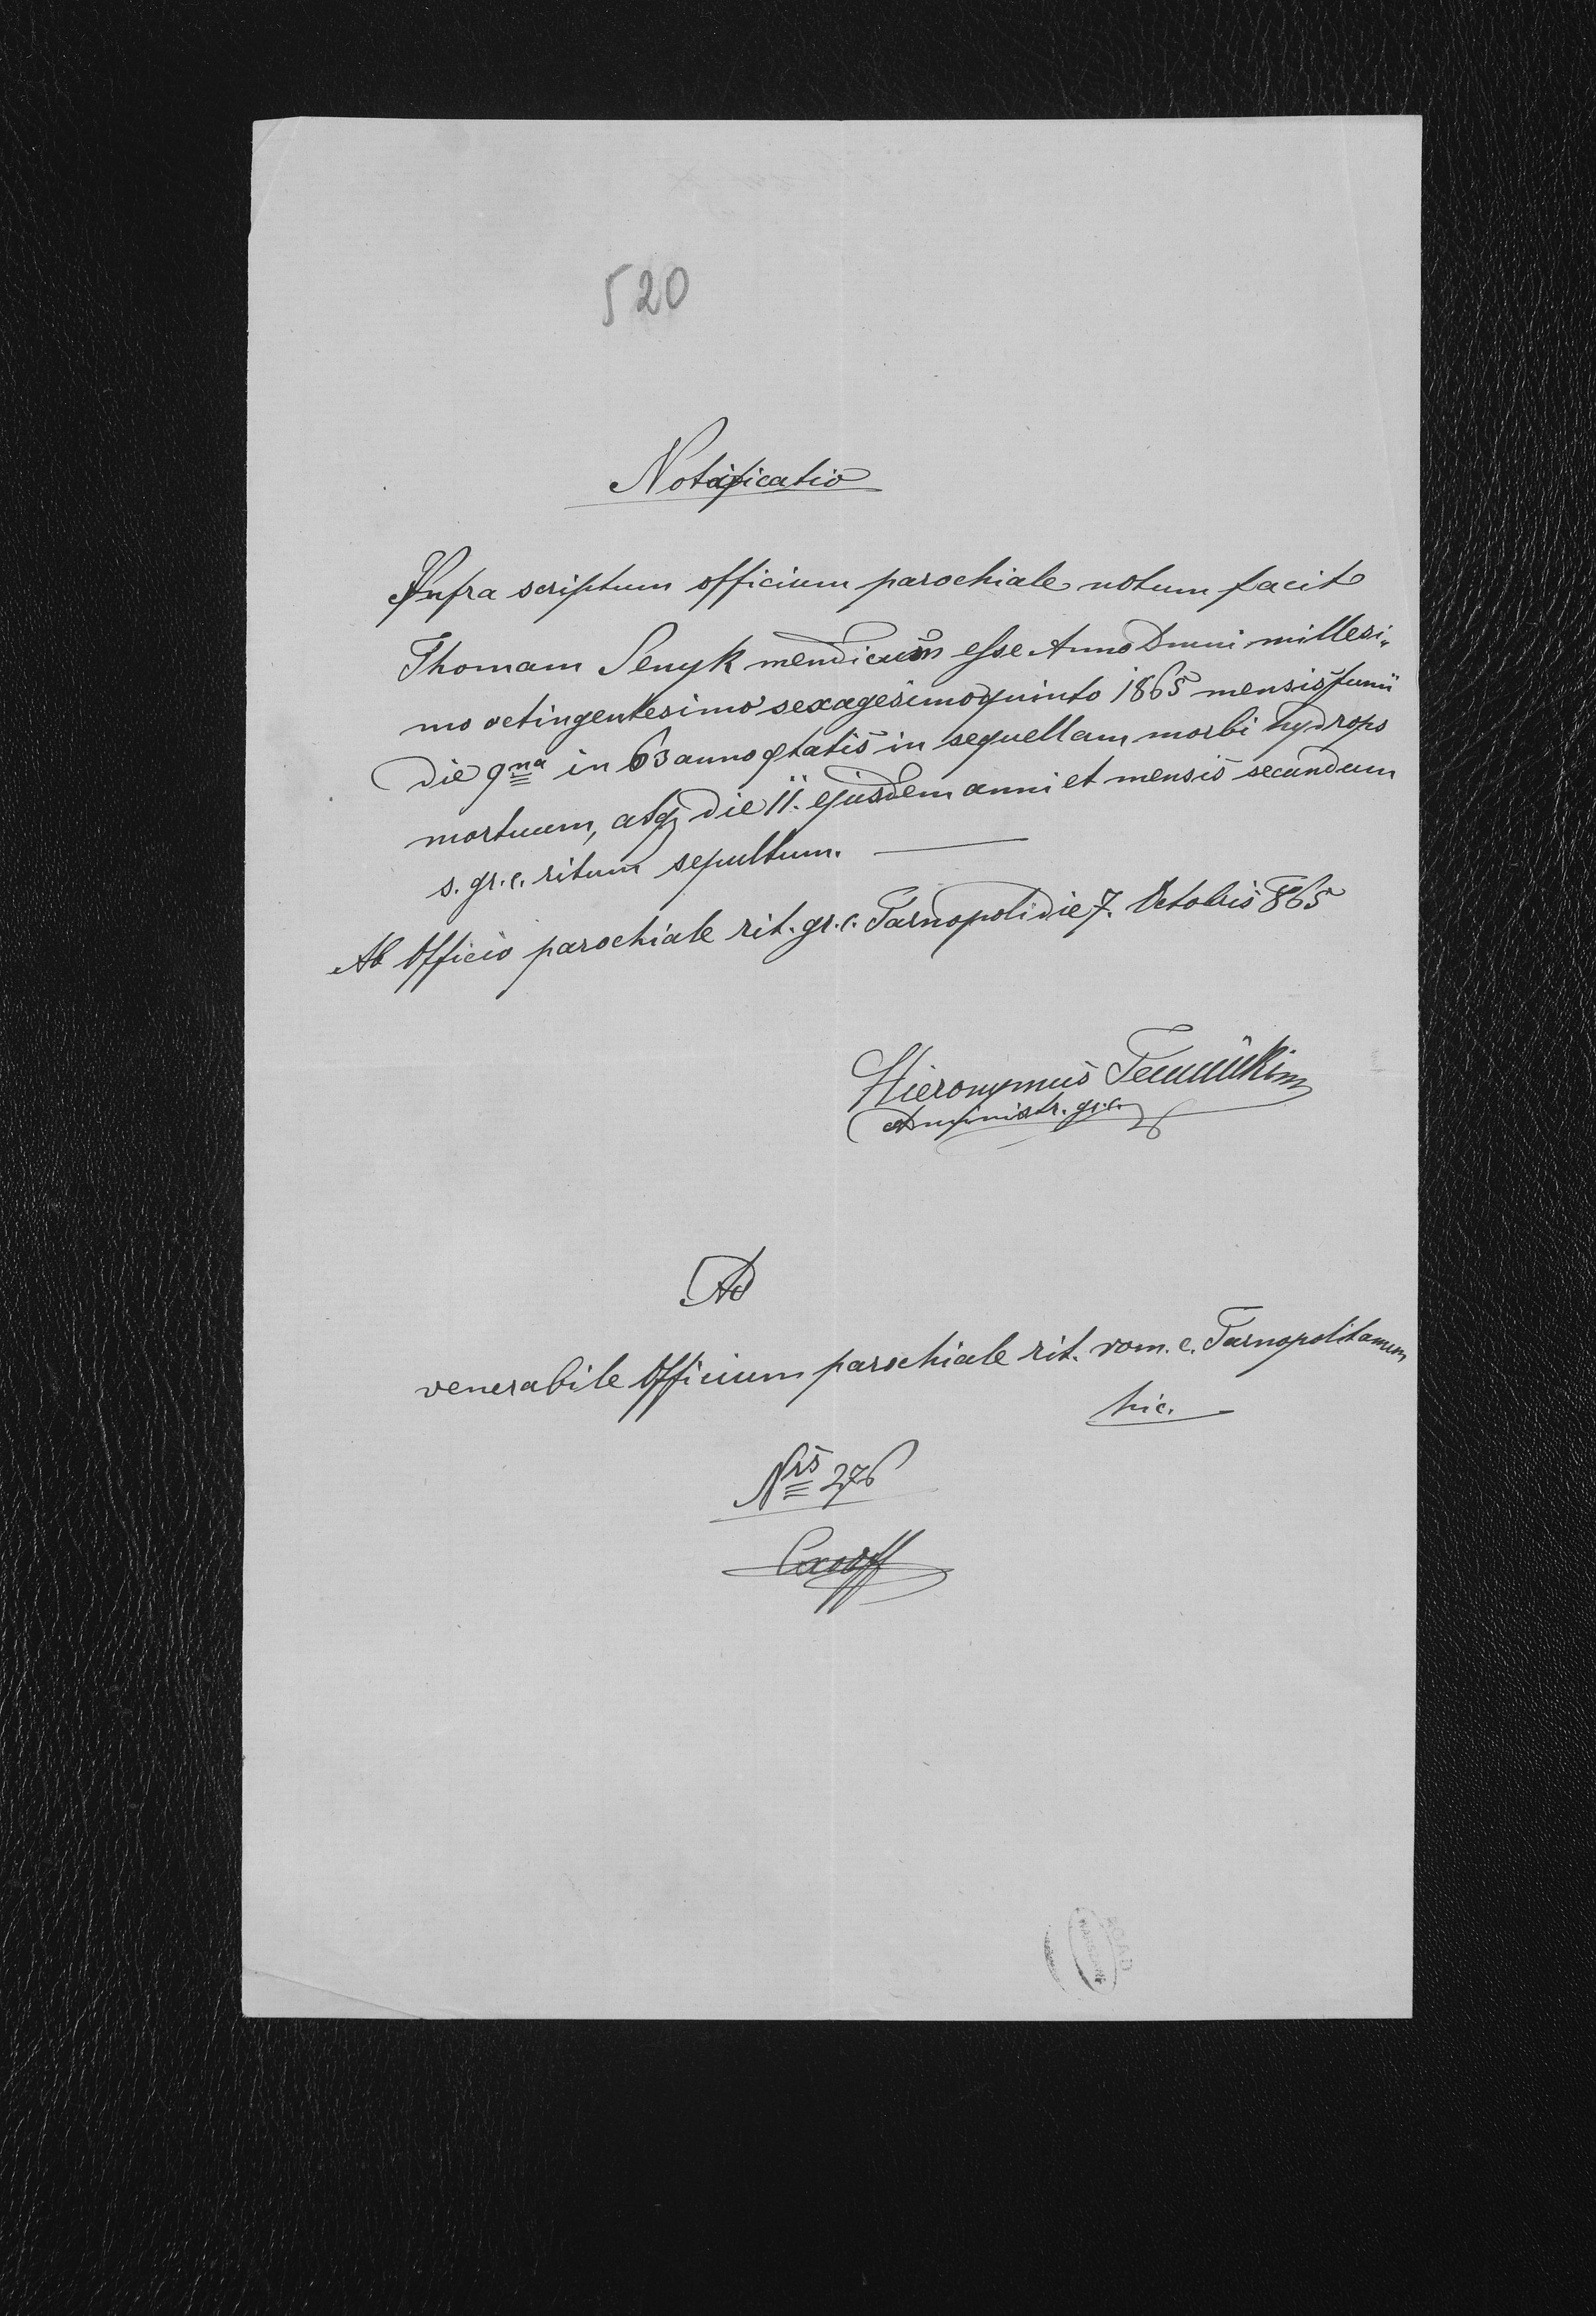 520
Notificatio
Infra scriptum officium parochiale notum facit
Thomam Senyk mendicum esse Anno Dmni millesi„
mo octingentesimo sexagesimoquinto 1865 mensis Junii
die 9na in 63 anno ętatis in sequellam morbi hydrops
mortuum, atq die 11. ejusdem anni et mensis secundum
s. gr. c. ritum sepultum.
Ab Officio parochiale rit. gr. c. Tarnopoli die 7. Octobris 865
Hieronymus
Administr. gr. c.
Ad
venerabile Officium parochiale rit. rom. c. Tarnopolitanum
hic.
Nris 276
Exoff
AGAD